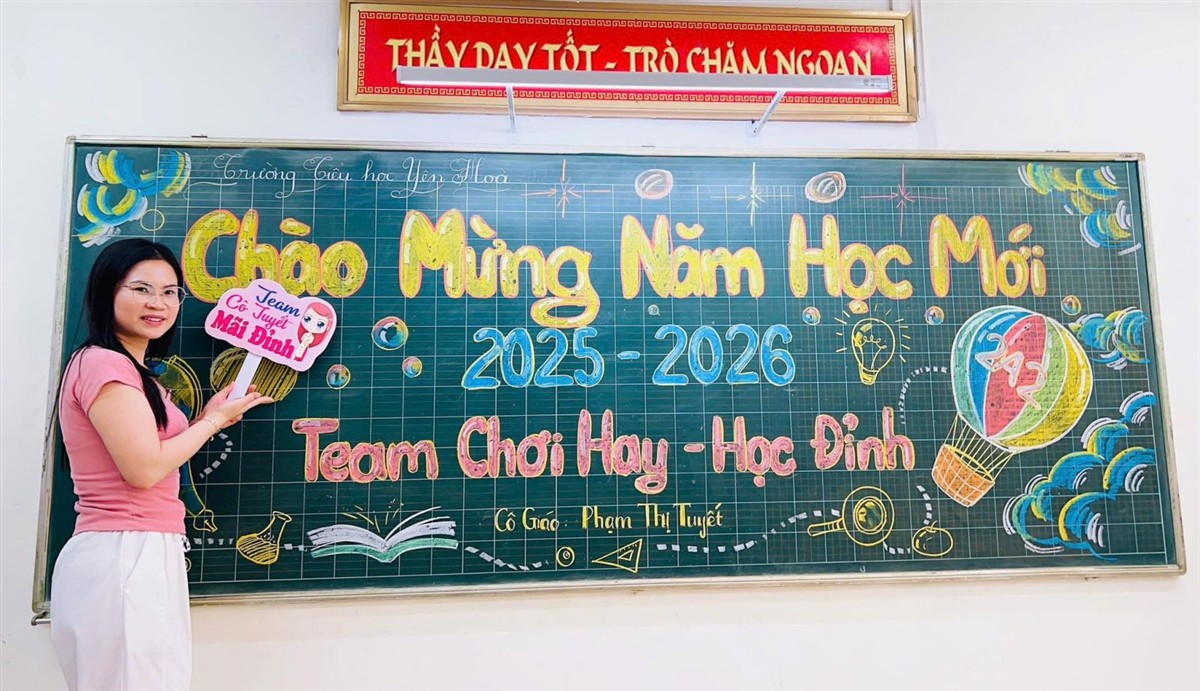 THẦY DẠY TỐT - TRÒ CHĂM NGOAN
Trường Tiểu học Yên Hoà
Chào Mừng Năm Học Mới
Team
Cô Tuyết
Mãi Đỉnh
2025 - 2026
2A2
Team Chơi Hay - Học Đỉnh
Cô Giáo: Phạm Thị Tuyết